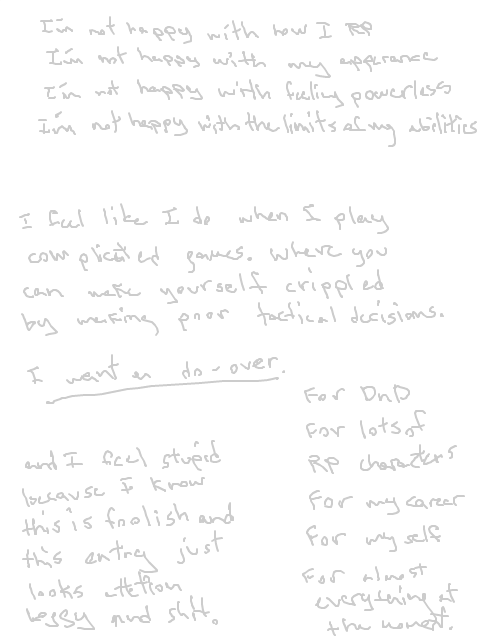 I'm not happy with how I RP
I'm not happy with my apperance
I'm not happy with feeling powerless
I'm not happy with the limits of my abilities
I feel like I do when I play
complicated games. Where you
can make yourself crippled
by making poor tactical decisions.
I want a do-over.
and I feel stupid
because I know
this is foolish and
this entry just
looks attetion
beggy and shit.
For DnD
For lots of
RP characters
For my career
For my self
For almost
everything at
the moment.